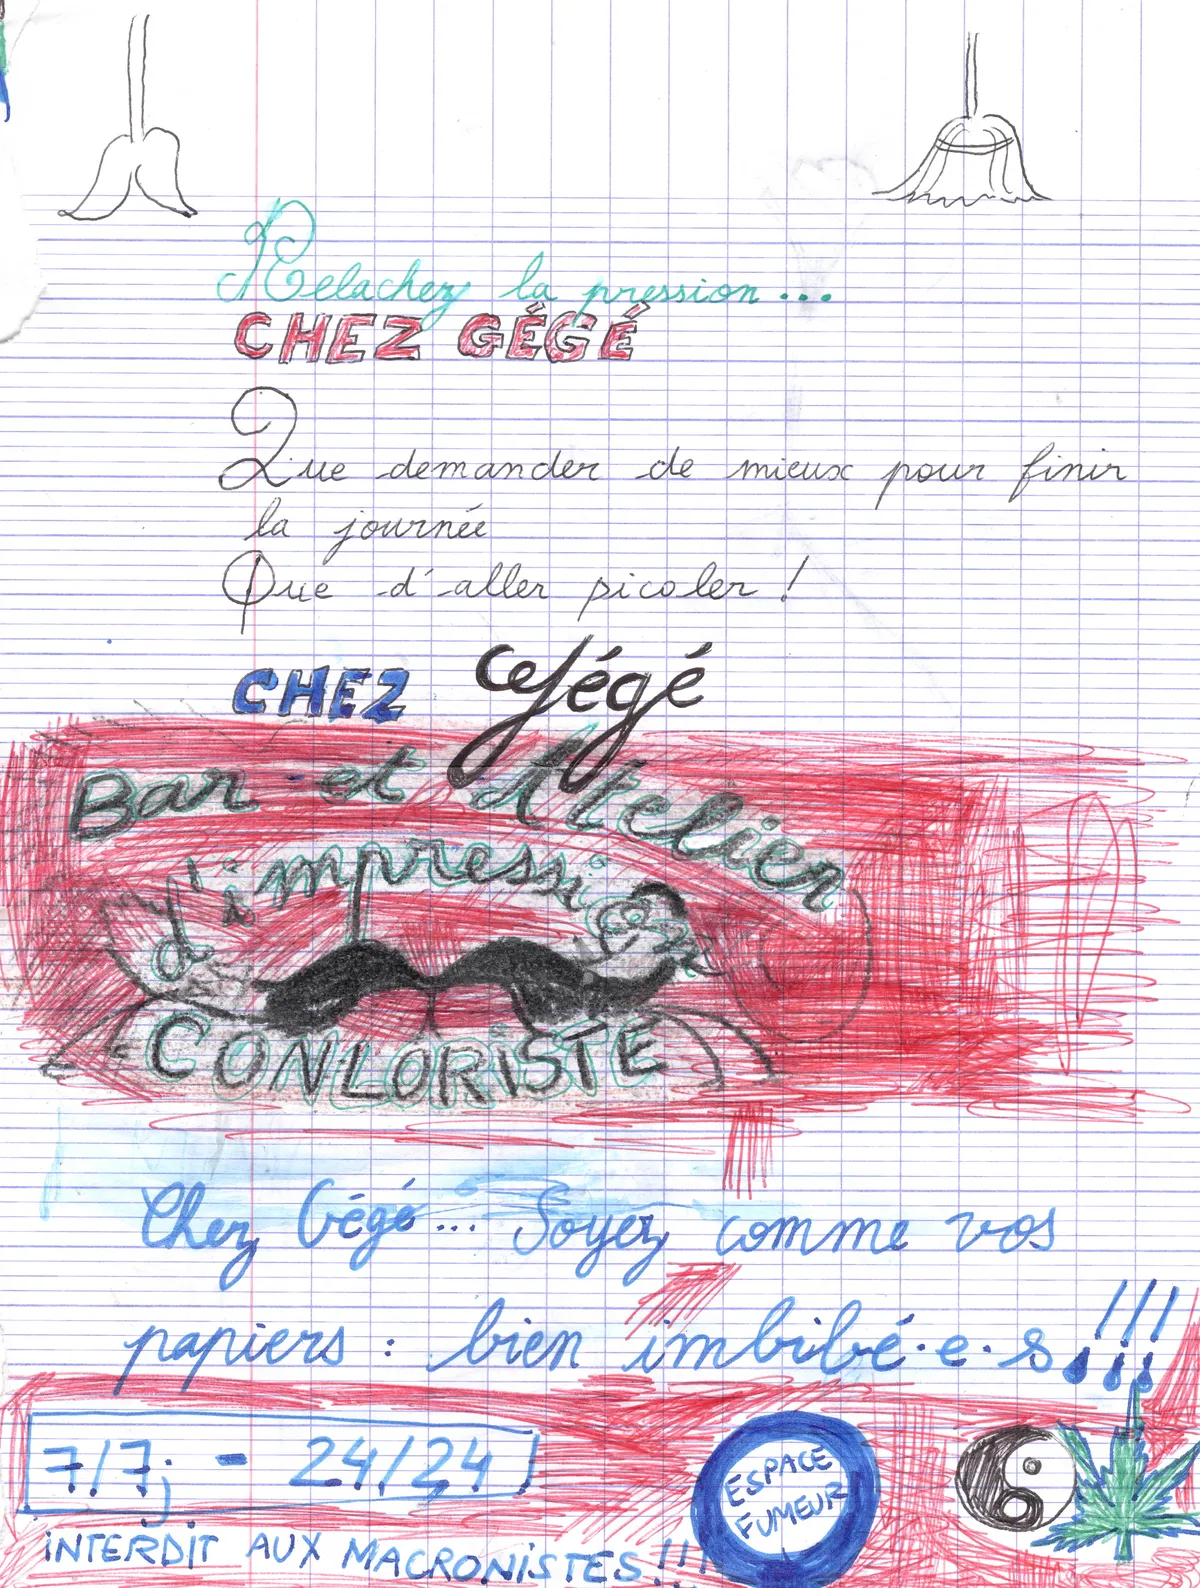 Relachez la pression...
CHEZ GÉGÉ
Que demander de mieux pour finir
la journée
Que d'aller picoler !
CHEZ Gégé
Bar et Atelier
d'impressio
CONLORISTE
Chez Gégé... Soyez comme vos
papiers : bien imbibé.e.s !!!
7/7j - 24/24
ESPACE
FUMEUR
INTERDIT AUX MACRONISTES !!!